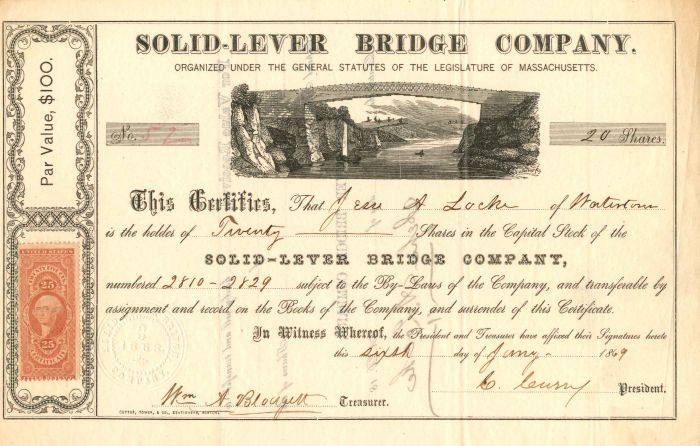 SOLID-LEVER BRIDGE COMPANY.
ORGANIZED UNDER THE GENERAL STATUTES OF THE LEGISLATURE OF MASSACHUSETTS.
Par Value, $100.
No. 52
20 Shares.
This Certifies, That Jesse A Locke of Watertown
is the holder of Twenty Shares in the Capital Stock of the
SOLID-LEVER BRIDGE COMPANY,
numbered 2810-2829 subject to the By-Laws of the Company, and transferable by
assignment and record on the Books of the Company, and surrender of this Certificate.
In Witness Whereof, the President and Treasurer have affixed their Signatures hereto
this sixth day of Jany 1869
C. Curry President.
Wm A. Blodgett Treasurer.
CUTTER, TOWER, & CO., STATIONERS, BOSTON.
25
25
CERTIFICATE
1868
COMPANY